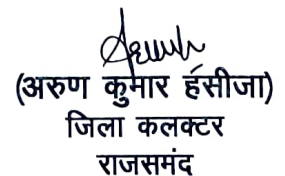 (अरुण कुमार हंसीजा)
जिला कलक्टर
राजसमंद